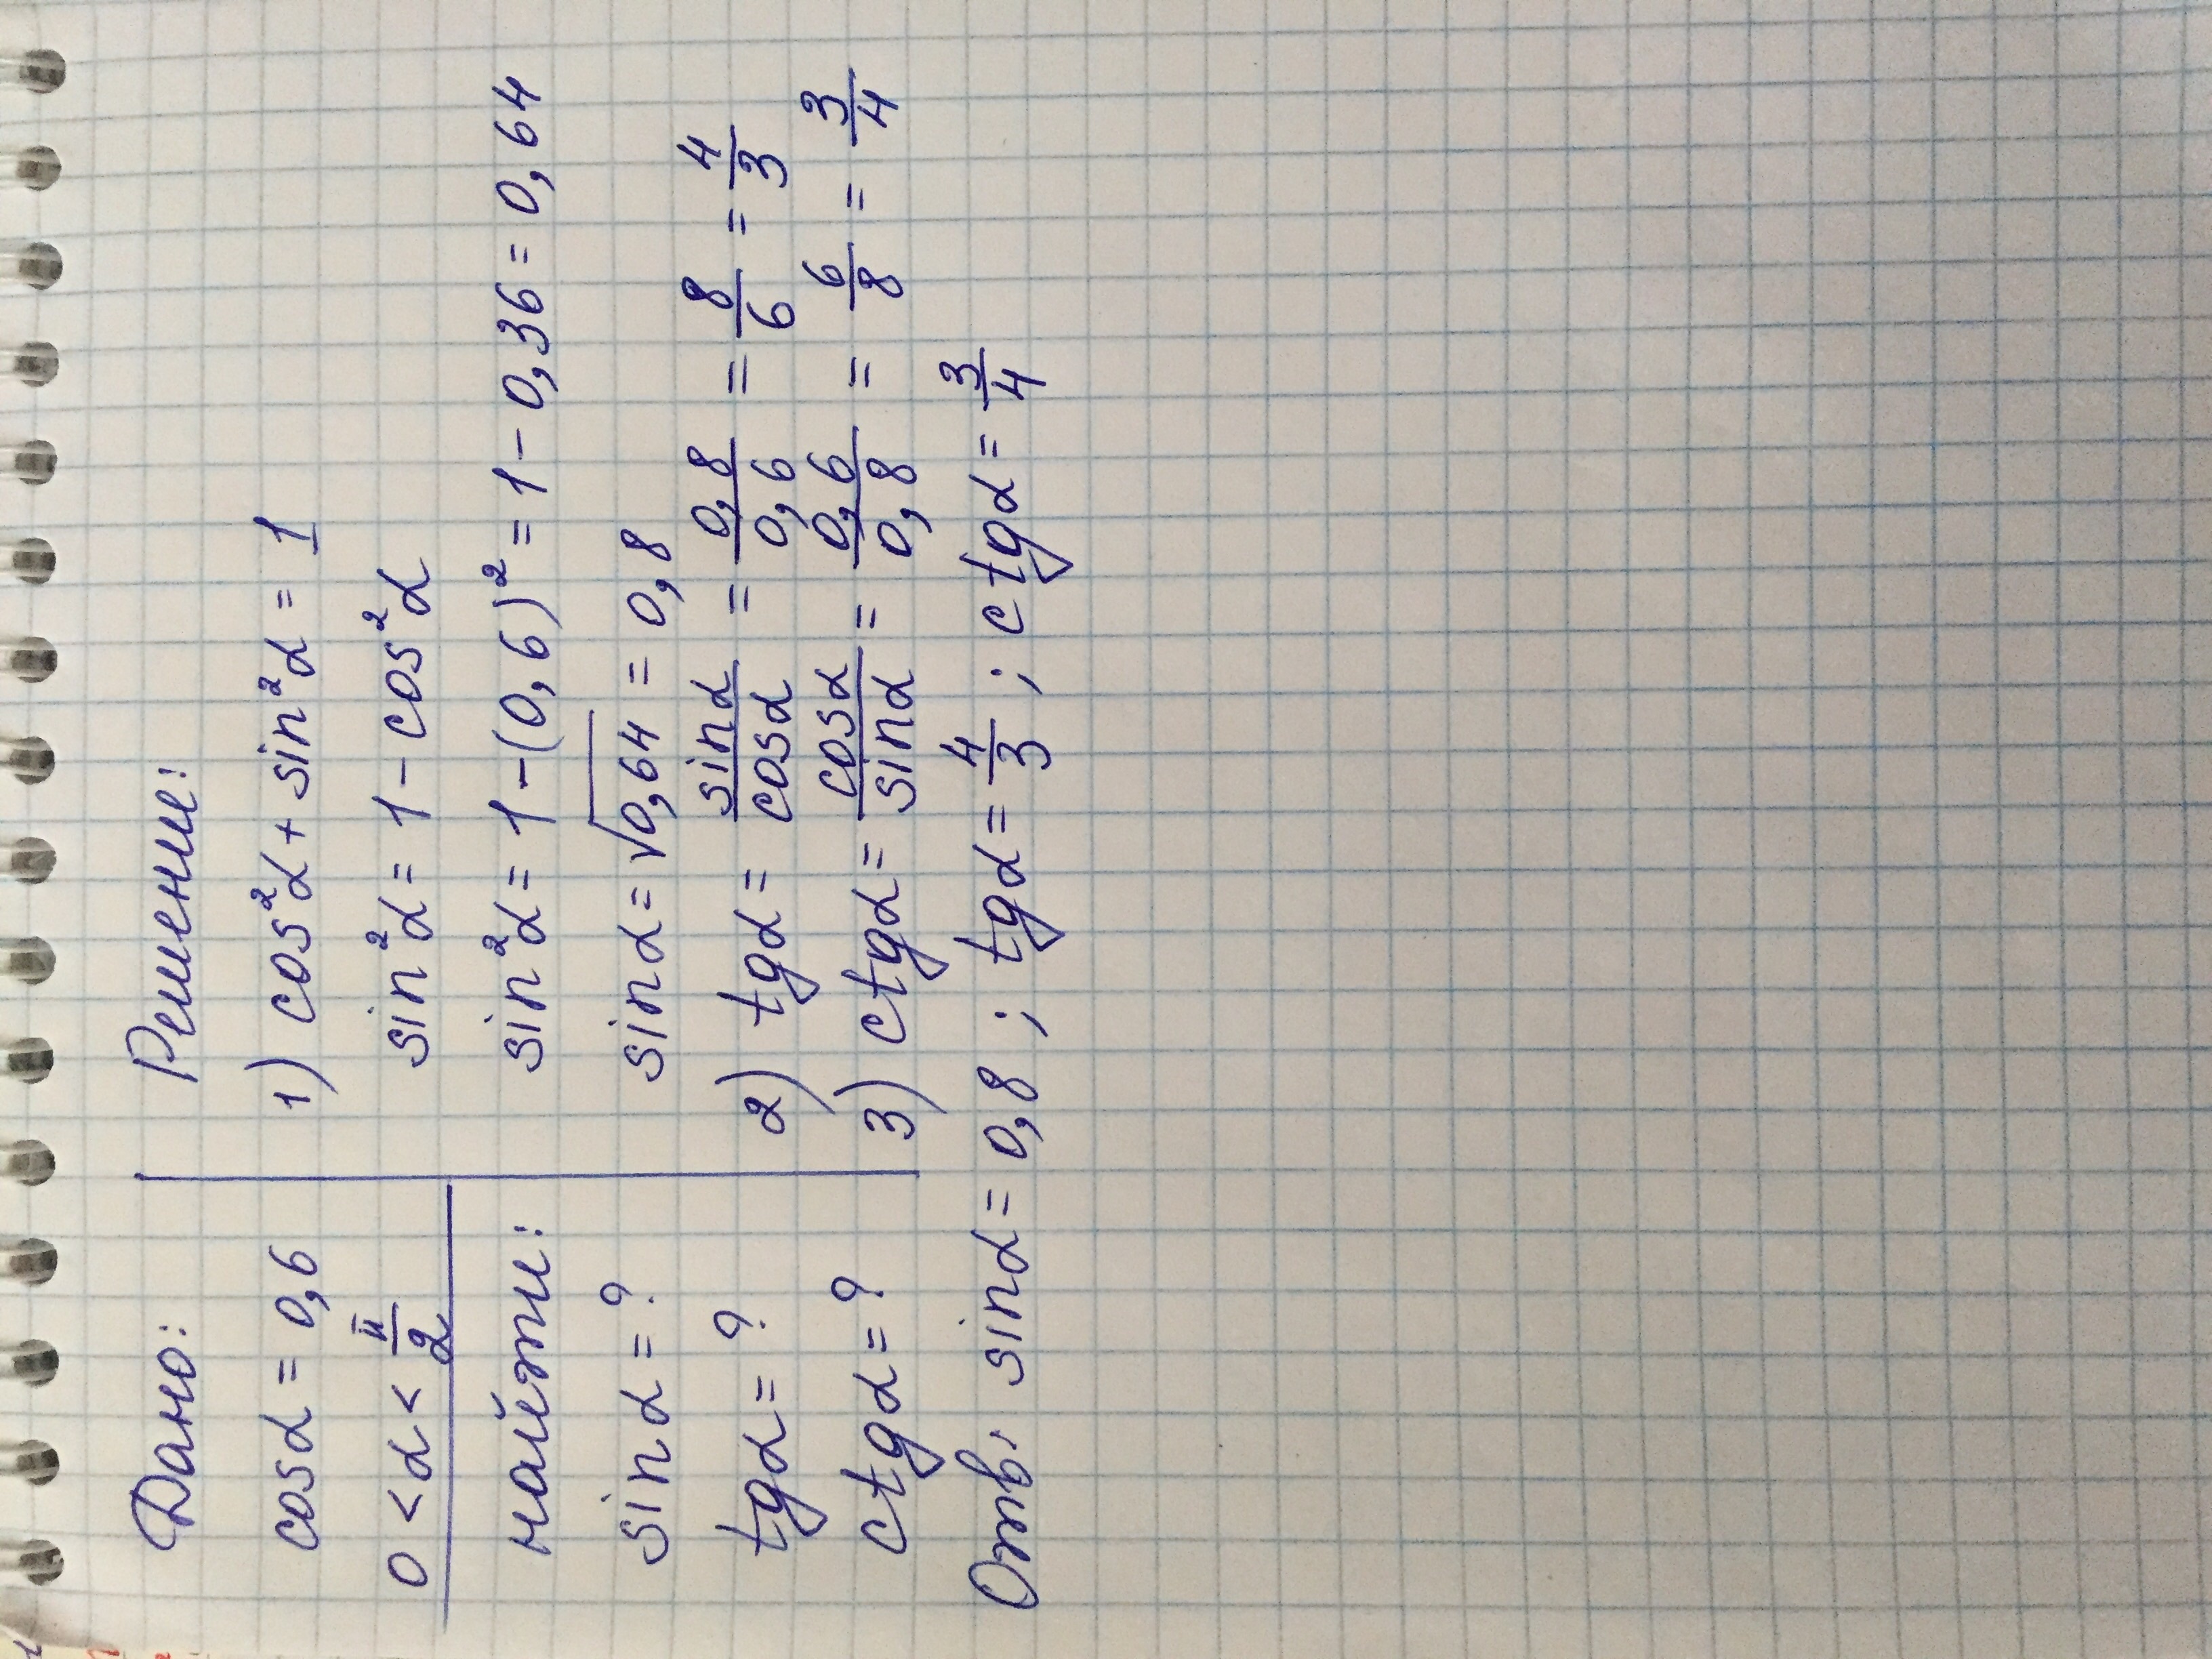 Дано:
cosα = 0,6
0 < α < π/2
найти:
sinα = ?
tgα = ?
ctgα = ?
Решение:
1) cos²α + sin²α = 1
sin²α = 1 - cos²α
sin²α = 1 - (0,6)² = 1 - 0,36 = 0,64
sinα = √0,64 = 0,8
2) tgα = sinα/cosα = 0,8/0,6 = 8/6 = 4/3
3) ctgα = cosα/sinα = 0,6/0,8 = 6/8 = 3/4
Отв, sinα = 0,8 ; tgα = 4/3 ; ctgα = 3/4